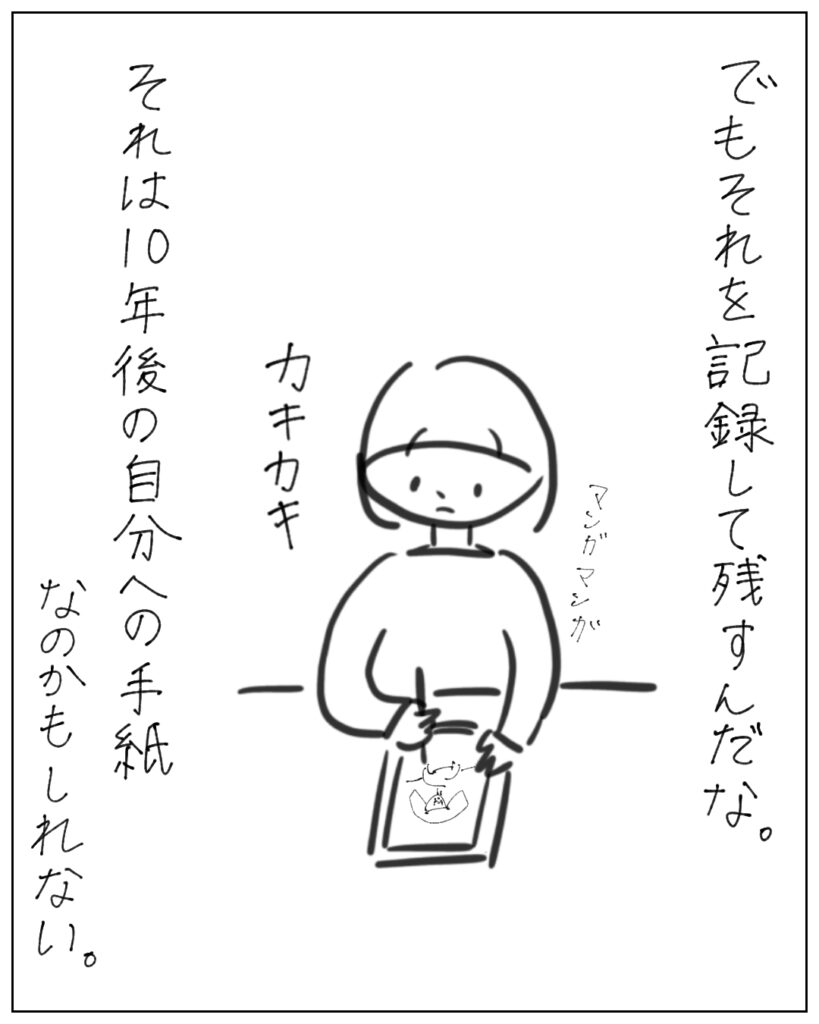 でもそれを記録して残すんだな。
マンガマンガ
カキカキ
それは10年後の自分への手紙
なのかもしれない。